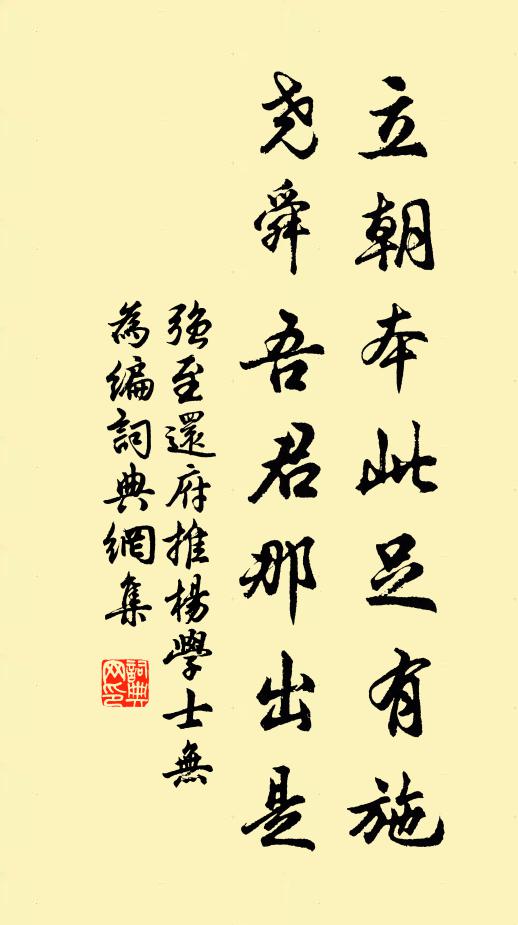 立朝本此足有施
尧舜吾君那出是
强至還府推楊學士無
為編詞典網集
詞典网印